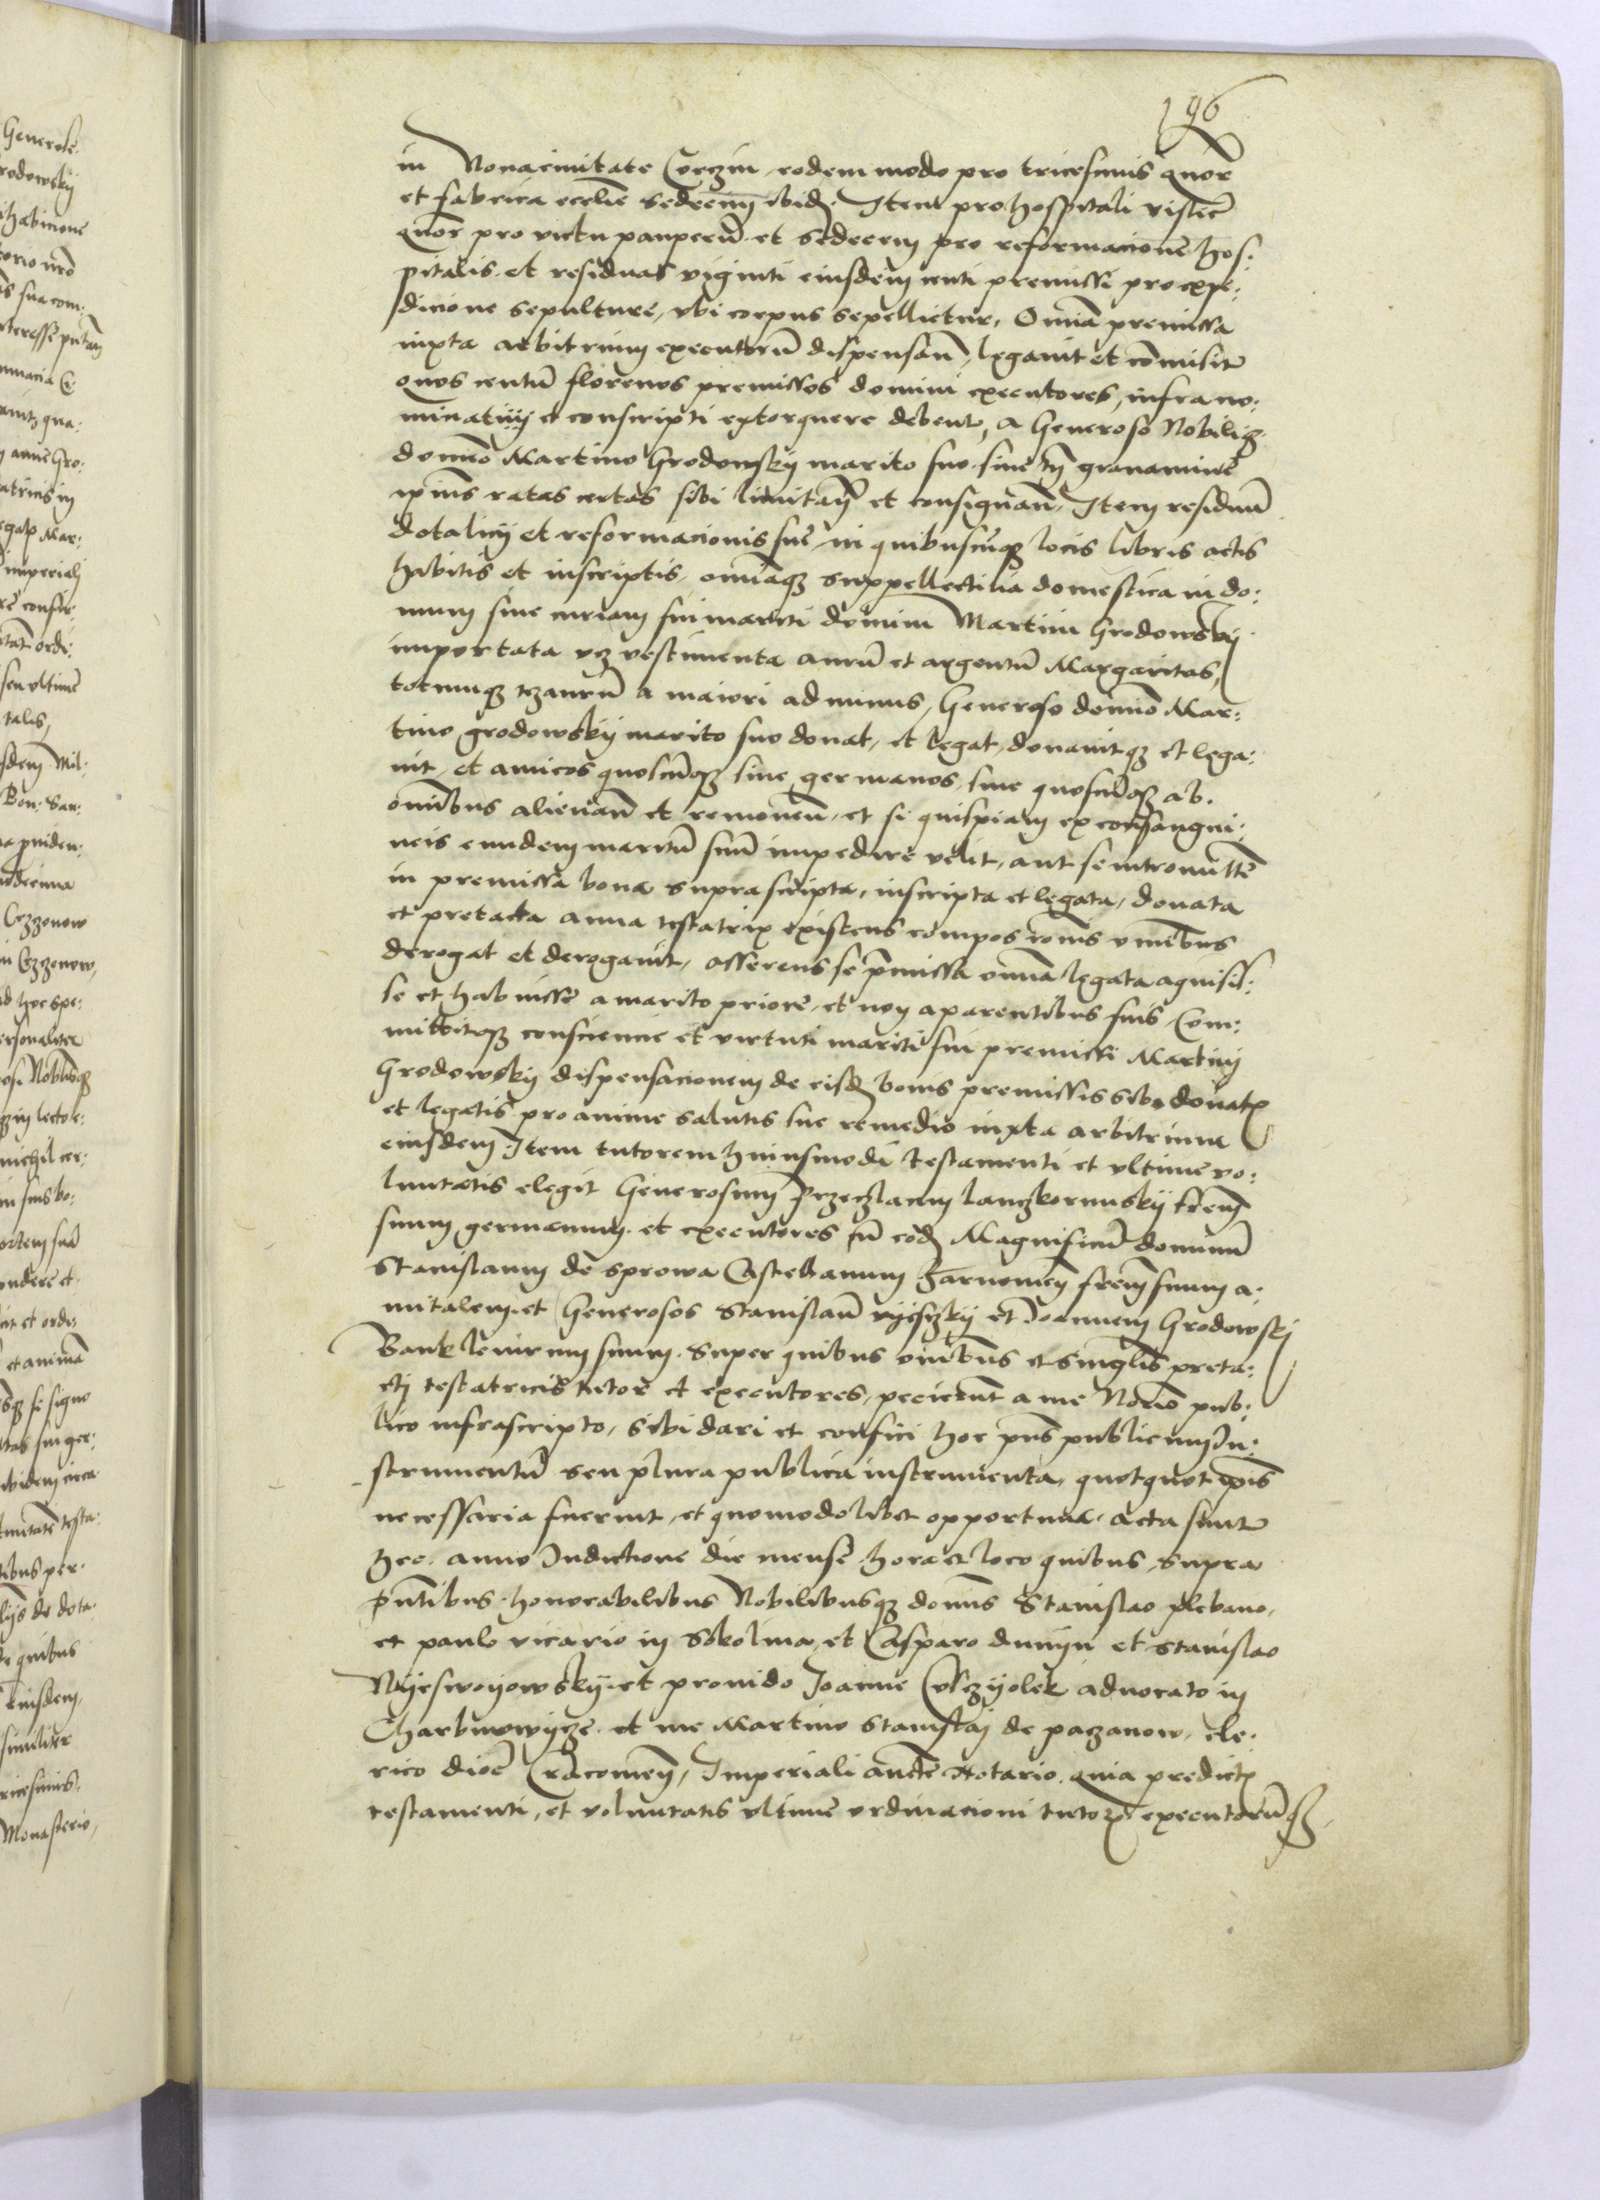 196
in Nonacinitate Corzin eodem modo pro tricesimis quor
et fabrica ecclie sedecim ibid. Item pro hospitali
quor pro victu pauperu et sedecem pro reformacione hos:
pitalis et residuas viginti eiusdem centi premissi pro expe:
dicione sepulture, vbi corpus sepellietur, Omnia premissa
iuxta arbitrium executoru dispensan, legauit et comisit
quos centu florenos premissos domini executores, infra no:
minatiy et conscripti extorquere debent, a Generoso Nobiliq
domino Martino Grodowskij marito suo sine tn grauamine
ipius ratas certas sibi limitan et consignan. Item residuu
dotalicij et reformacionis sue in quibuscuq locis libris actis
habitis et inscriptis, omniaq suppellectilia domestica in do:
mum siue curiam sui mariti domini Martini Grodowskij
importata vz vestimenta auru et argentu Margaritas,
totumq tezauru a maiori ad minus, Generoso domino Mar:
tino grodowskij marito suo donat, et legat, donauitq et lega:
uit, et amicos quoscuq siue germanos, siue quoscuq ab
omibus alienan et remouen, et si quispiam ex consangui:
neis eundem maritu suu impedire velit, aut se intromitte
in premissa bona suprascripta, inscripta et legata, donata
et pretacta anna testatrix existens compos ronis omibus
derogat et derogauit, asserens se pmissa omia legata aquisis:
se et habuisse a marito priore, et non a parentibus suis Com:
mittitq consciencie et virtuti mariti sui premissi Martini
Grodowskij dispensacionem de eisd bonis premissis sibi donatx
et legatis pro anime salutis sue remedio iuxta arbitrium
eiusdem. Item tutorem huiusmodi testamenti et vltime vo:
luntatis elegit Generosum Przeczlaum Lanczkoruskij frem
suum germanum et executores cu eod Magnificu dominu
Stanislaum de Sprowa Castellanum Zarnowien frem suum a:
mitalem et Generosos Stanislau et Joannem Grodowskj
Bank leuirum suum. Super quibus omibus et singlis preta:
ctj testatricis tutor et executores, pecierunt a me Notrio pub:
lico infrascripto, sibi dari et confici hoc pns publicum In:
strumentu seu plura publica instrumenta, quotquot ipis
necessaria fuerint, et quomodolibet opportuna. acta sunt
hec. anno Indictione die mense hora et loco quibus supra
pntibus honorabilibus Nobilibusq domis Stanislao plebano,
et paulo vicario in Sokolina, et Casparo dunijn et Stanislao
Nijeswoijowskij et prouido Joanne aduocato in
Charbinowijcze et me Martino Stanislaj de paczanow cle:
rico dioc Cracouien, Imperiali aucte Notario quia predictx
testamenti, et voluntatis vltime ordinacioni tutorx executoruq